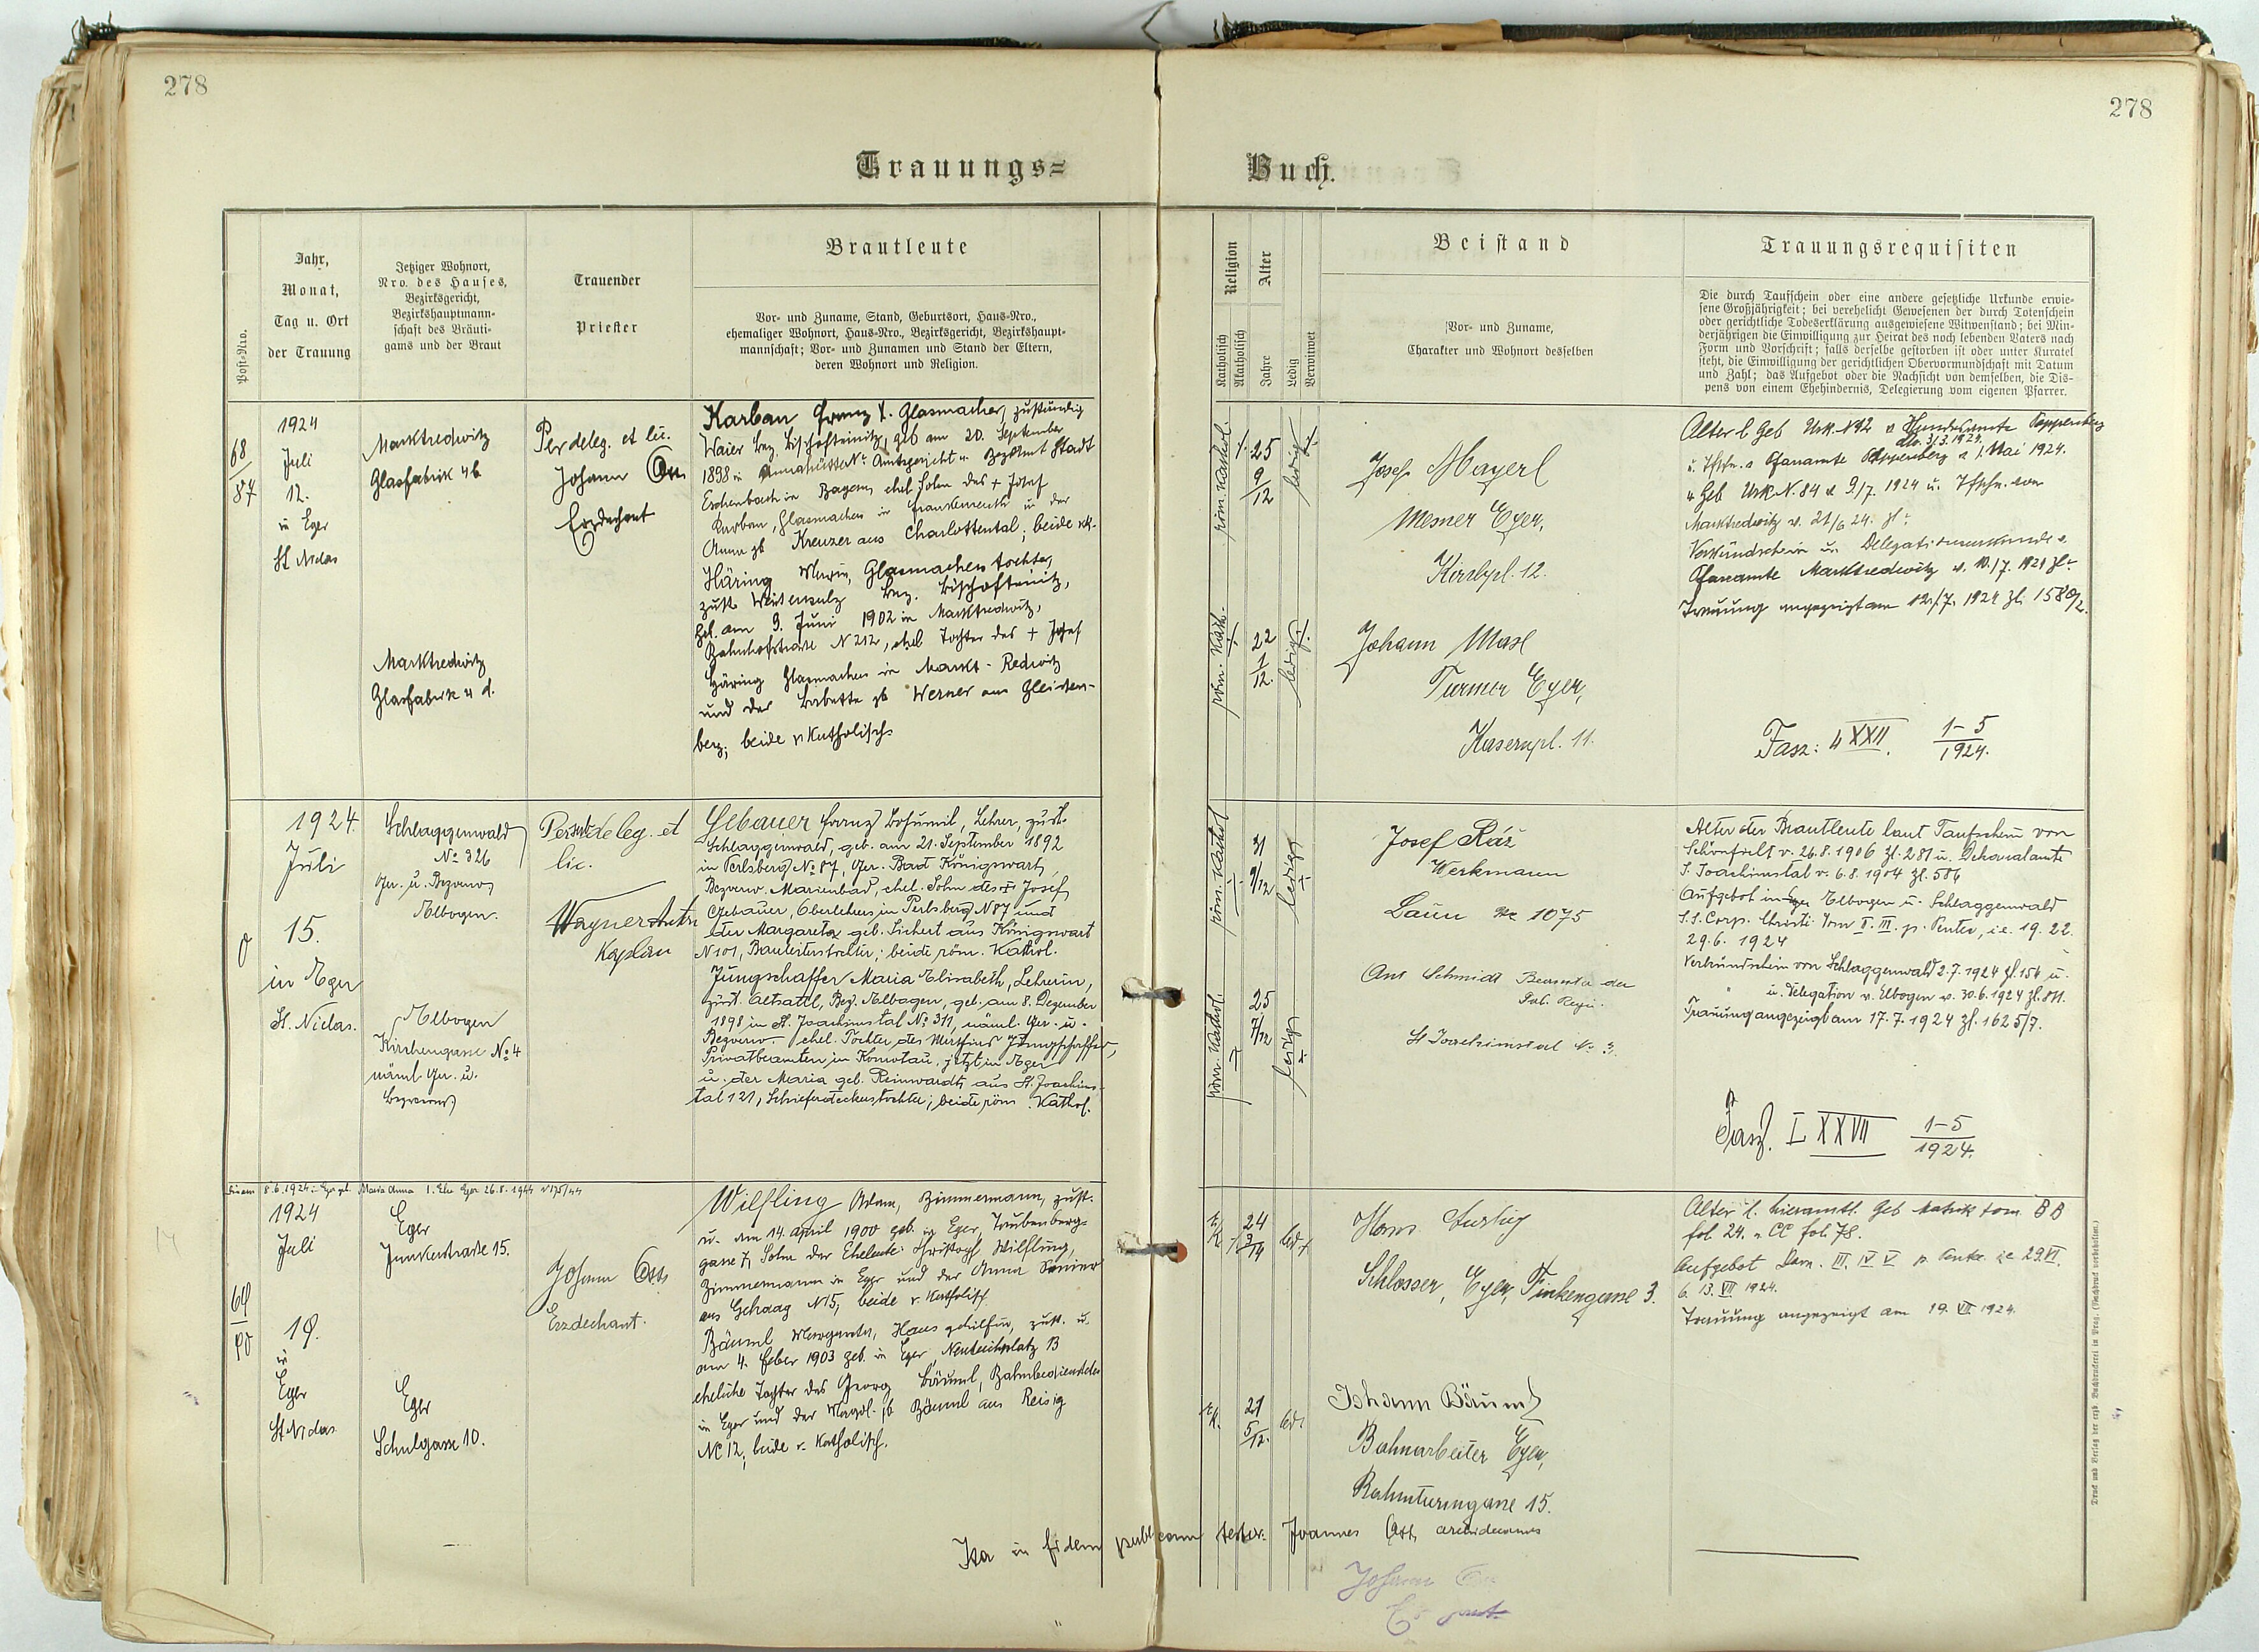 278
278
Trauungs=
Buch.
Post-Nro.
Jahr,
Monat,
Tag u. Ort
der Trauung
Jetziger Wohnort,
Nro. des Hauses,
Bezirksgericht,
Bezirkshauptmann-
schaft des Bräuti-
gams und der Braut
Trauender
Priester
Brautleute
Vor- und Zuname, Stand, Geburtsort, Haus-Nro.,
ehemaliger Wohnort, Haus-Nro., Bezirksgericht, Bezirkshaupt-
mannschaft; Vor- und Zunamen und Stand der Eltern,
deren Wohnort und Religion.
Religion
Katholisch
Akatholisch
Alter
Jahre
Ledig
Verwitwet
Beistand
Vor- und Zuname,
Charakter und Wohnort desselben
Trauungsrequisiten
Die durch Taufschein oder eine andere gesetzliche Urkunde erwie-
sene Großjährigkeit; bei verehelicht Gewesenen der durch Totenschein
oder gerichtliche Todeserklärung ausgewiesene Witwenstand; bei Min-
derjährigen die Einwilligung zur Heirat des noch lebenden Vaters nach
Form und Vorschrift; falls derselbe gestorben ist oder unter Kuratel
steht, die Einwilligung der gerichtlichen Obervormundschaft mit Datum
und Zahl; das Aufgebot oder die Nachsicht von demselben, die Dis-
pens von einem Ehehindernis, Delegierung vom eigenen Pfarrer.
68
87
1924
Juli
12.
in Eger
St Niclas
Marktredwitz
Glasfabrik 4b
Marktredwitz
Glasfabrik 4 d.
Per deleg. et lic.
Johann
Erzdechant
Karban Franz X. Glasmacher, zuständig
Waier Bez. Bischofteinitz, geb am 20. September
1898 in Annahütte Amtsgericht u. Bez Amt Stadt
Eschenbach in Bayern, ehel. Sohn des + Josef
Karban, Glasmacher in Frankenreuth u der
Anna gb Kreuzer aus Charlottental; beide rk.
Häring Maria, Glasmacherstochter,
zust. Bez. Bischofteinitz,
geb. am 9. Juni 1902 in Marktredwitz,
Bahnhofstraße N 212, ehel Tochter des + Josef
Häring Glasmacher in Markt-Redwitz
und der Babette gb Werner aus Gleissen-
berg; beide r Katholisch.
röm. kathol.
25
9
12
ledig
röm. kath.
22
1
12.
ledig
Josef Mayerl
Mesner Eger,
Kirchpl. 12.
Johann Masl
Turmer Eger,
Kasernpl. 11.
Alter l Geb Urk. N 42
dto. 3/3. 1924.
1. Mai 1924.
Geb Urk N. 84 v 9/7. 1924 u. von
Marktredwitz v. 21/6 24.
Verkündschein u. Delegationsurkunde v.
Pfarramte Marktredwitz v. 10./7. 1924
Trauung angezeigt am 12./7. 1924 Zl. 1580/2.
Fasz: 4 XXII. 1-5
1924.
1924.
Juli
15.
in Eger
St. Niclas.
Schlaggenwald
No 326
Ger. u. Bezverw
Elbogen.
Elbogen
Kirchengasse No 4
näml. Ger. u.
Bezverw.
deleg. et
lic.
Wagner Anton
Kaplan
Gebauer Franz Bohumil, Lehrer, zust.
Schlaggenwald, geb. am 21. September 1892
in Perlsberg No 87, Ger. Bad Königswart,
Bezverw. Marienbad, ehel. Sohn des + Josef
Gebauer, Oberlehrers in Perlsberg N 87 und
der Margareta geb. Sichert aus Königswart
N 101, Bauleiterstochter; beide röm. Kathol.
Jungschaffer Maria Elisabeth, Lehrerin,
zust. Altsattl, Bez. Elbogen, geb. am 8. Dezember
1898 in St. Joachimstal No 311, näml. Ger. u.
Bezverw. ehel. Tochter des Jungschaffer,
Privatbeamten in Komotau, jetzt in Eger
u. der Maria geb. Reinwardt, aus St. Joachims-
tal 121, Schieferdeckerstochter; beide röm. Kathol.
röm. Kathol
31
9/12
ledig
röm. kathol.
25
7/12
ledig
Josef Ráž
Werkmann
Laun No 1075
Ant Schmidt Beamte der
St Joachimstal No 3.
Alter der Brautleute laut Taufschein von
Schönficht v. 26.8.1906 Zl. 281 u. Dekanalamte
S. Joachimstal v. 6.8.1904 Zl. 586
Aufgebot in Eger Elbogen u. Schlaggenwald
S.S. Corp. Christi Dom II. III. p. Pentec, i.e. 19. 22.
29.6. 1924
Verkündschein von Schlaggenwald 2.7.1924 Zl. 154 u.
u. Delegation v. Elbogen v. 30.6.1924
Trauung angezeigt am 17.7.1924 Zl. 1625/7.
Fasz. LXXVII 1-5
1924.
8.6.1924 in Eger geb. Maria Anna 1. Ehe Eger 26.8.1944 N 175/44
69
90
1924
Juli
19.
in
Eger
St Niclas
Eger
Junkerstraße 15.
Eger
Schulgasse 10.
Johann
Erzdechant.
Wilfling Adam, Zimmermann, zust.
u. am 14. April 1900 geb. in Eger,
gasse 7, Sohn der Eheleute Christoph Wilfling,
Zimmermann in Eger und der Anna
aus Gehaag N 15; beide r. Katholisch.
Bäuml Margareta, Hausgehilfin, zust. u.
am 4. Feber 1903 geb. in Eger,
eheliche Tochter des Georg Bäuml, Bahnbediensteter
in Eger und der Magdl. gb Bäuml aus Reisig
No 12; beide r. Katholisch.
24
3
led.
rk.
21
5
12.
led.
Hans
Schlosser, Eger, Finkengasse 3.
Johann Bäuml
Bahnarbeiter Eger,
15.
Alter l. hieramtl. Geb Matrik tom BB
fol. 24. u CC fol. 78.
Aufgebot Dom. III. IV V p. Pente. ie 29.VI.
6. 13. VII 1924.
Trauung angezeigt am 19. VII 1924.
Ita in fidem publicam testor: Joannes archidecanus
Johann
Druck und Verlag der erzb. Buchdruckerei in Prag. (Nachdruck vorbehalten.)